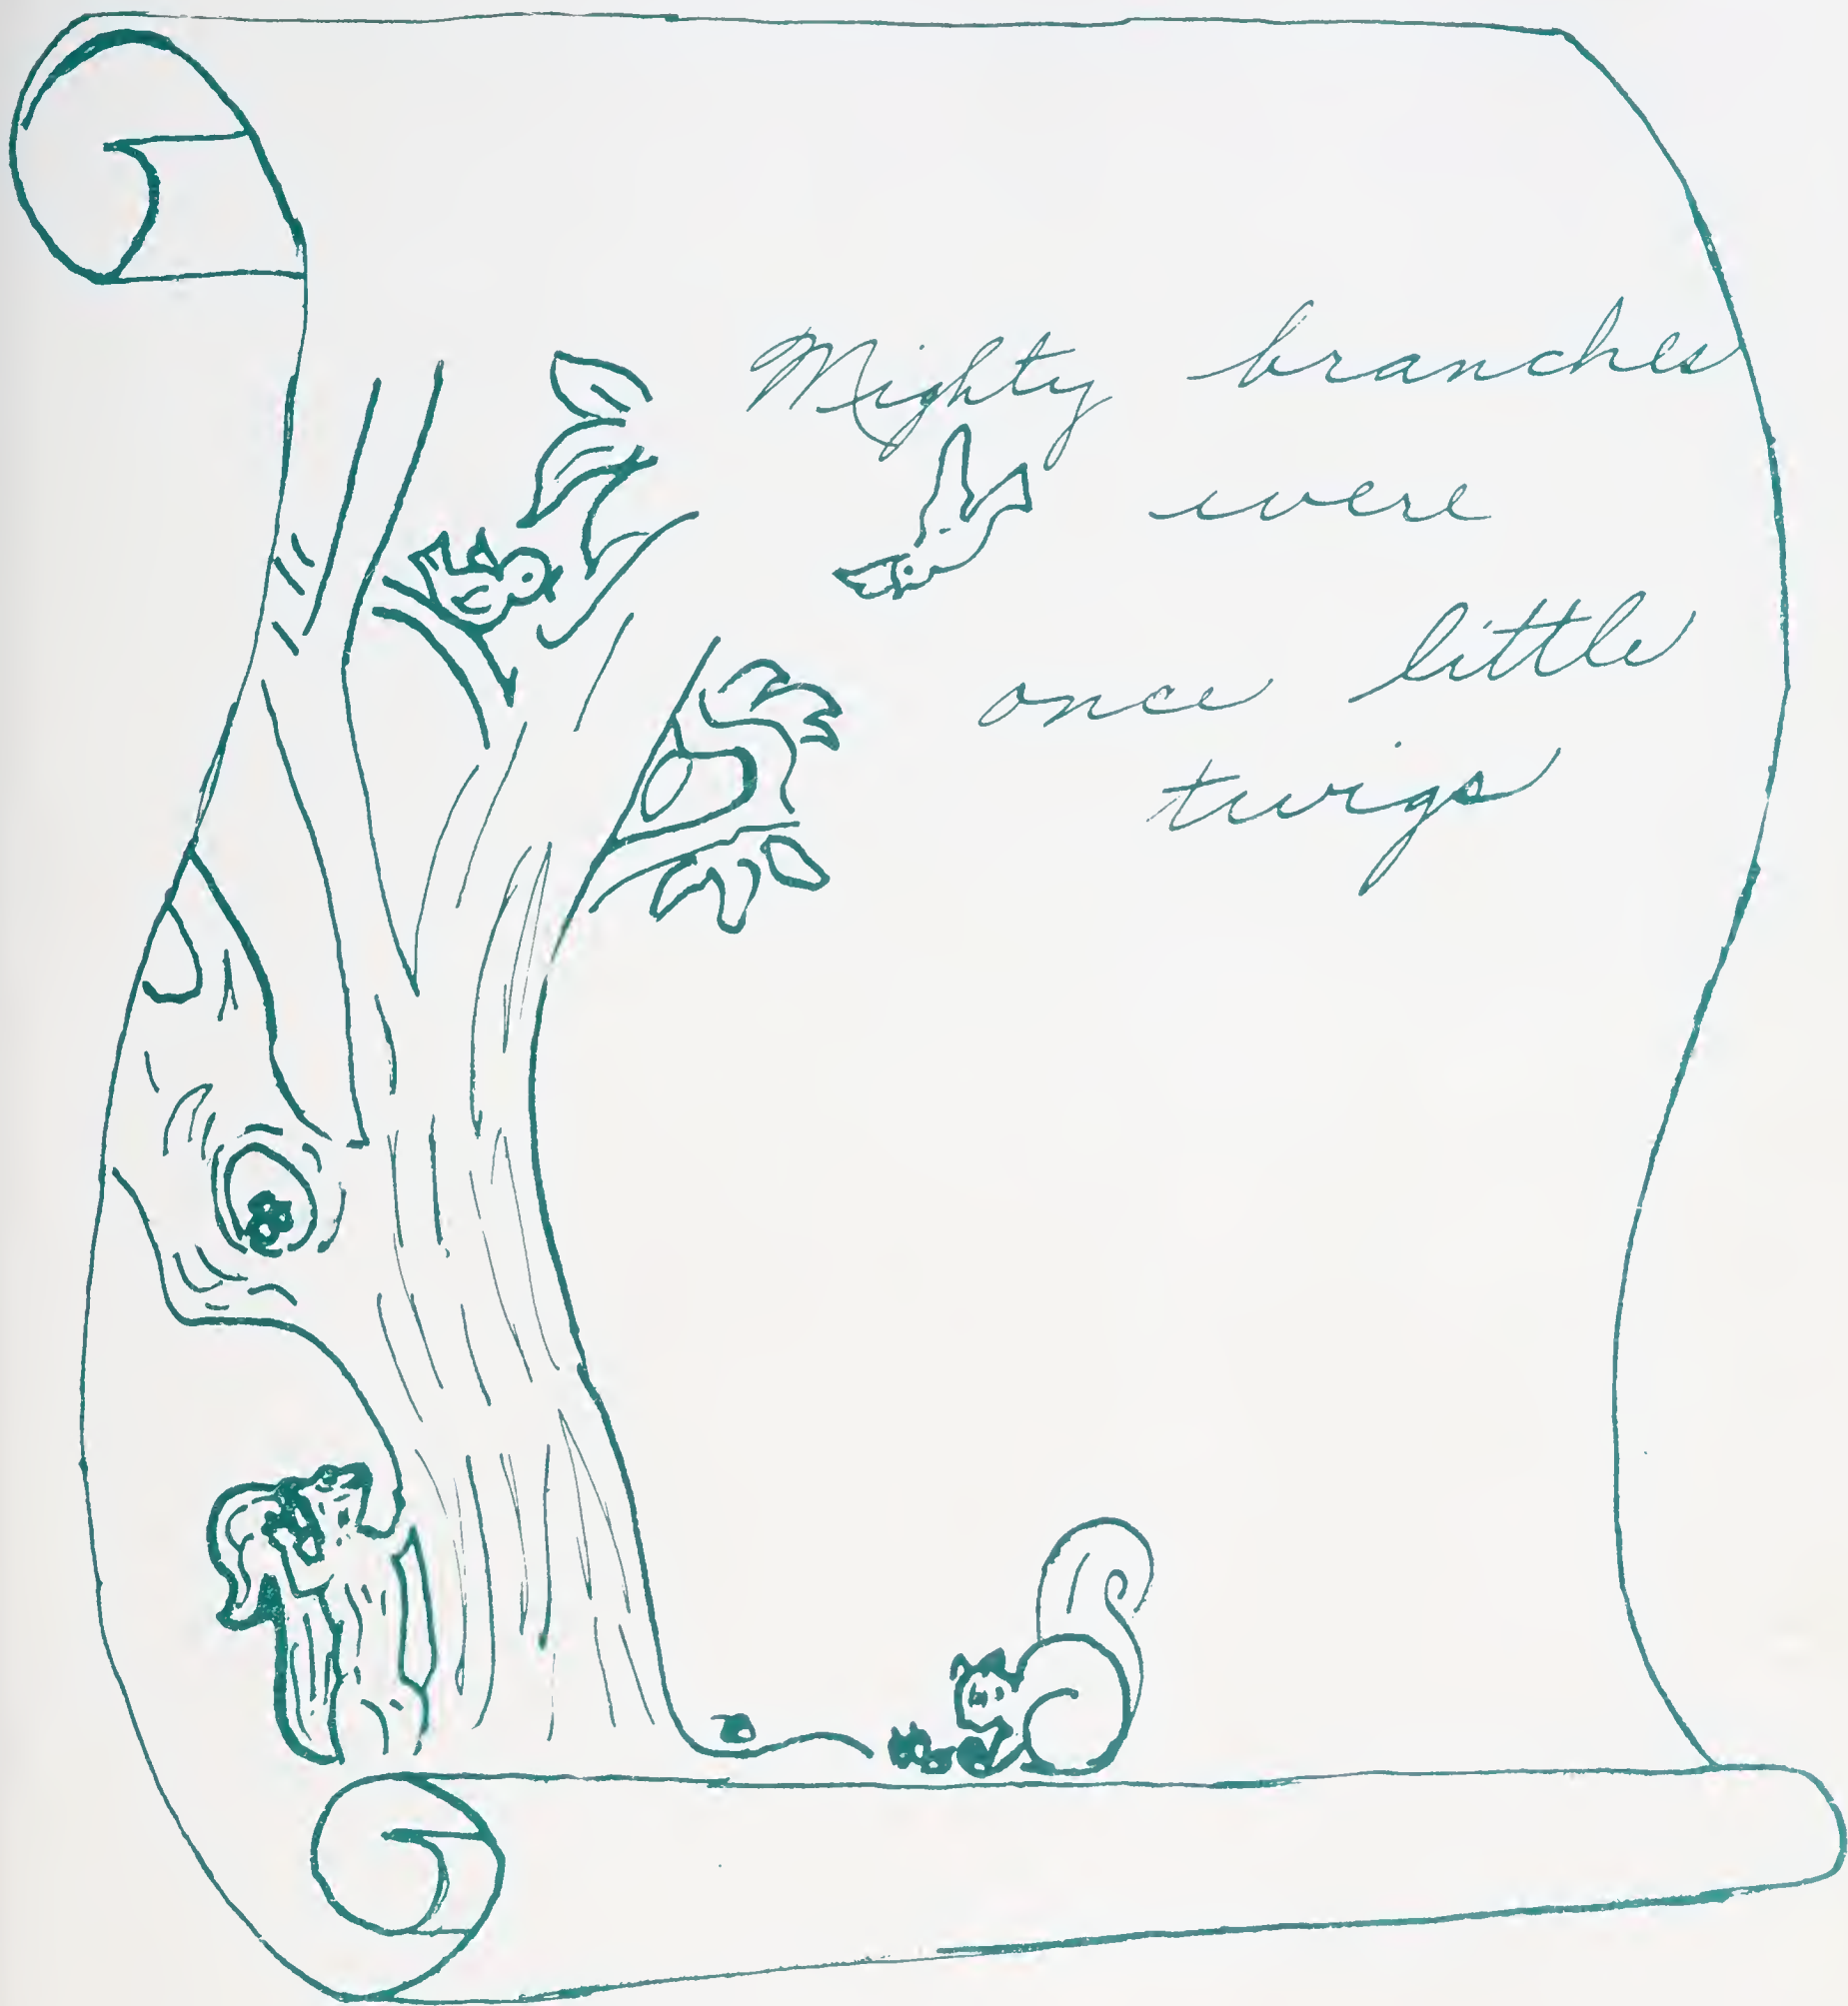 Mighty branches
were
once little
twigs